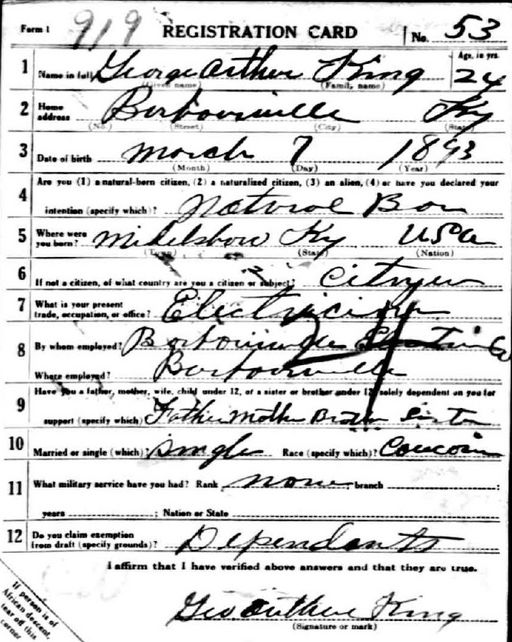 Form 1 919 REGISTRATION CARD No. 53
1 Name in full George Arthur King Age, in yrs. 24
(Given name) (Family name)
2 Home address Borbourville Ky
(No.) (Street) (City) (State)
3 Date of birth March 7 1893
(Month) (Day) (Year)
4 Are you (1) a natural-born citizen, (2) a naturalized citizen, (3) an alien, (4) or have you declared your
intention (specify which)? Natural Bor
5 Where were you born? Midelsboro Ky USA
(Town) (State) (Nation)
6 If not a citizen, of what country are you a citizen or subject? Citizen
7 What is your present trade, occupation, or office? Electrician
8 By whom employed? Borbourville Co
Where employed? Borbourville
24
9 Have you a father, mother, wife, child under 12, or a sister or brother under 12, solely dependent on you for
support (specify which)? Father Mother Brother Sister
10 Married or single (which)? Single Race (specify which)? Caucasian
11 What military service have you had? Rank none branch
years ; Nation or State
12 Do you claim exemption from draft (specify grounds)? Dependants
I affirm that I have verified above answers and that they are true.
Geo Arthur King
(Signature or mark)
If person is of
African descent,
tear off this
corner